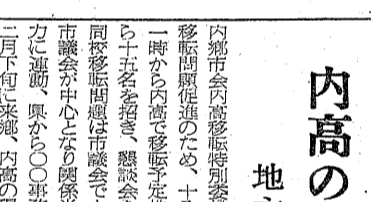 内高の
地
内郷市会内高移転特別委
移転問題促進のため、十
一時から内高で移転予定
ら十五名を招き、懇談会
同校移転問題は市議会で
市議会が中心となり関係
力に運動、県から〇〇事
二月下旬に来郷、内高の